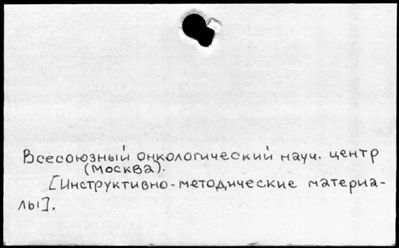 Всесоюзный онкологический науч. центр
(Москва).
[Инструктивно-методические материа-
лы].